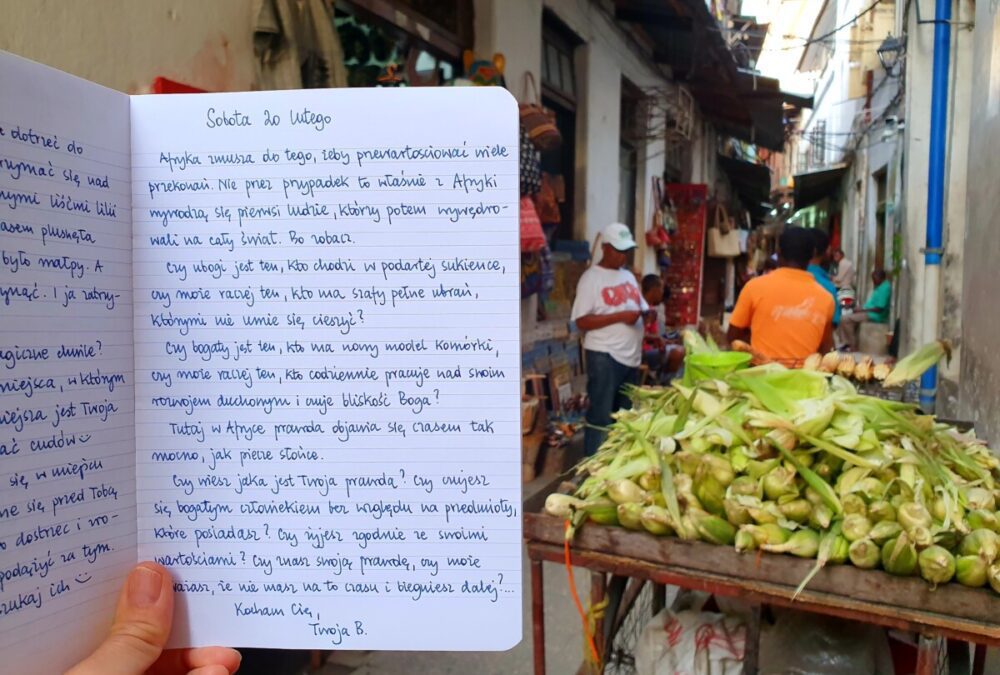 dotrzeć do
rymać się nad
nymi liśćmi lilii
asem plusnęła
było małpy. A
ynąć. I ja zatrzy-
agiczne chwile?
miejsca, w którym
iejsza jest Twoja
ać cudów☺
się, w miejscu
ne się przed Tobą
o dostrzec i zro-
podążyć za tym.
zukaj ich ☺
Sobota 20 lutego
Afryka zmusza do tego, żeby przewartościować wiele
przekonań. Nie przez przypadek to właśnie z Afryki
wywodzą się pierwsi ludzie, którzy potem wywędro-
wali na cały świat. Bo zobacz.
Czy ubogi jest ten, kto chodzi w podartej sukience,
czy może raczej ten, kto ma szafy pełne ubrań,
którymi nie umie się cieszyć?
Czy bogaty jest ten, kto ma nowy model komórki,
czy może raczej ten, kto codziennie pracuje nad swoim
rozwojem duchowym i czuje bliskość Boga?
Tutaj w Afryce prawda objawia się czasem tak
mocno, jak piecze słońce.
Czy wiesz jaka jest Twoja prawda? Czy czujesz
się bogatym człowiekiem bez względu na przedmioty,
które posiadasz? Czy żyjesz zgodnie ze swoimi
wartościami? Czy znasz swoją prawdę, czy może
uważasz, że nie masz na to czasu i biegniesz dalej?...
Kocham Cię,
Twoja B.